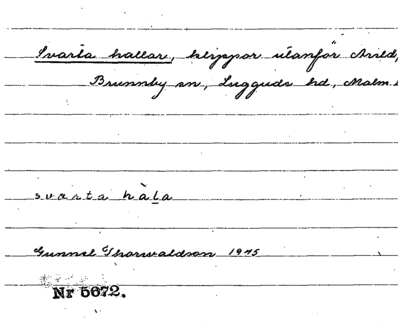 Svarta hallar, klippor utanför Arild,
Brunnby sn, Luggude hd, Malm
svarta hàla
Gunnel Thorwaldson 1975
Nr 5672.